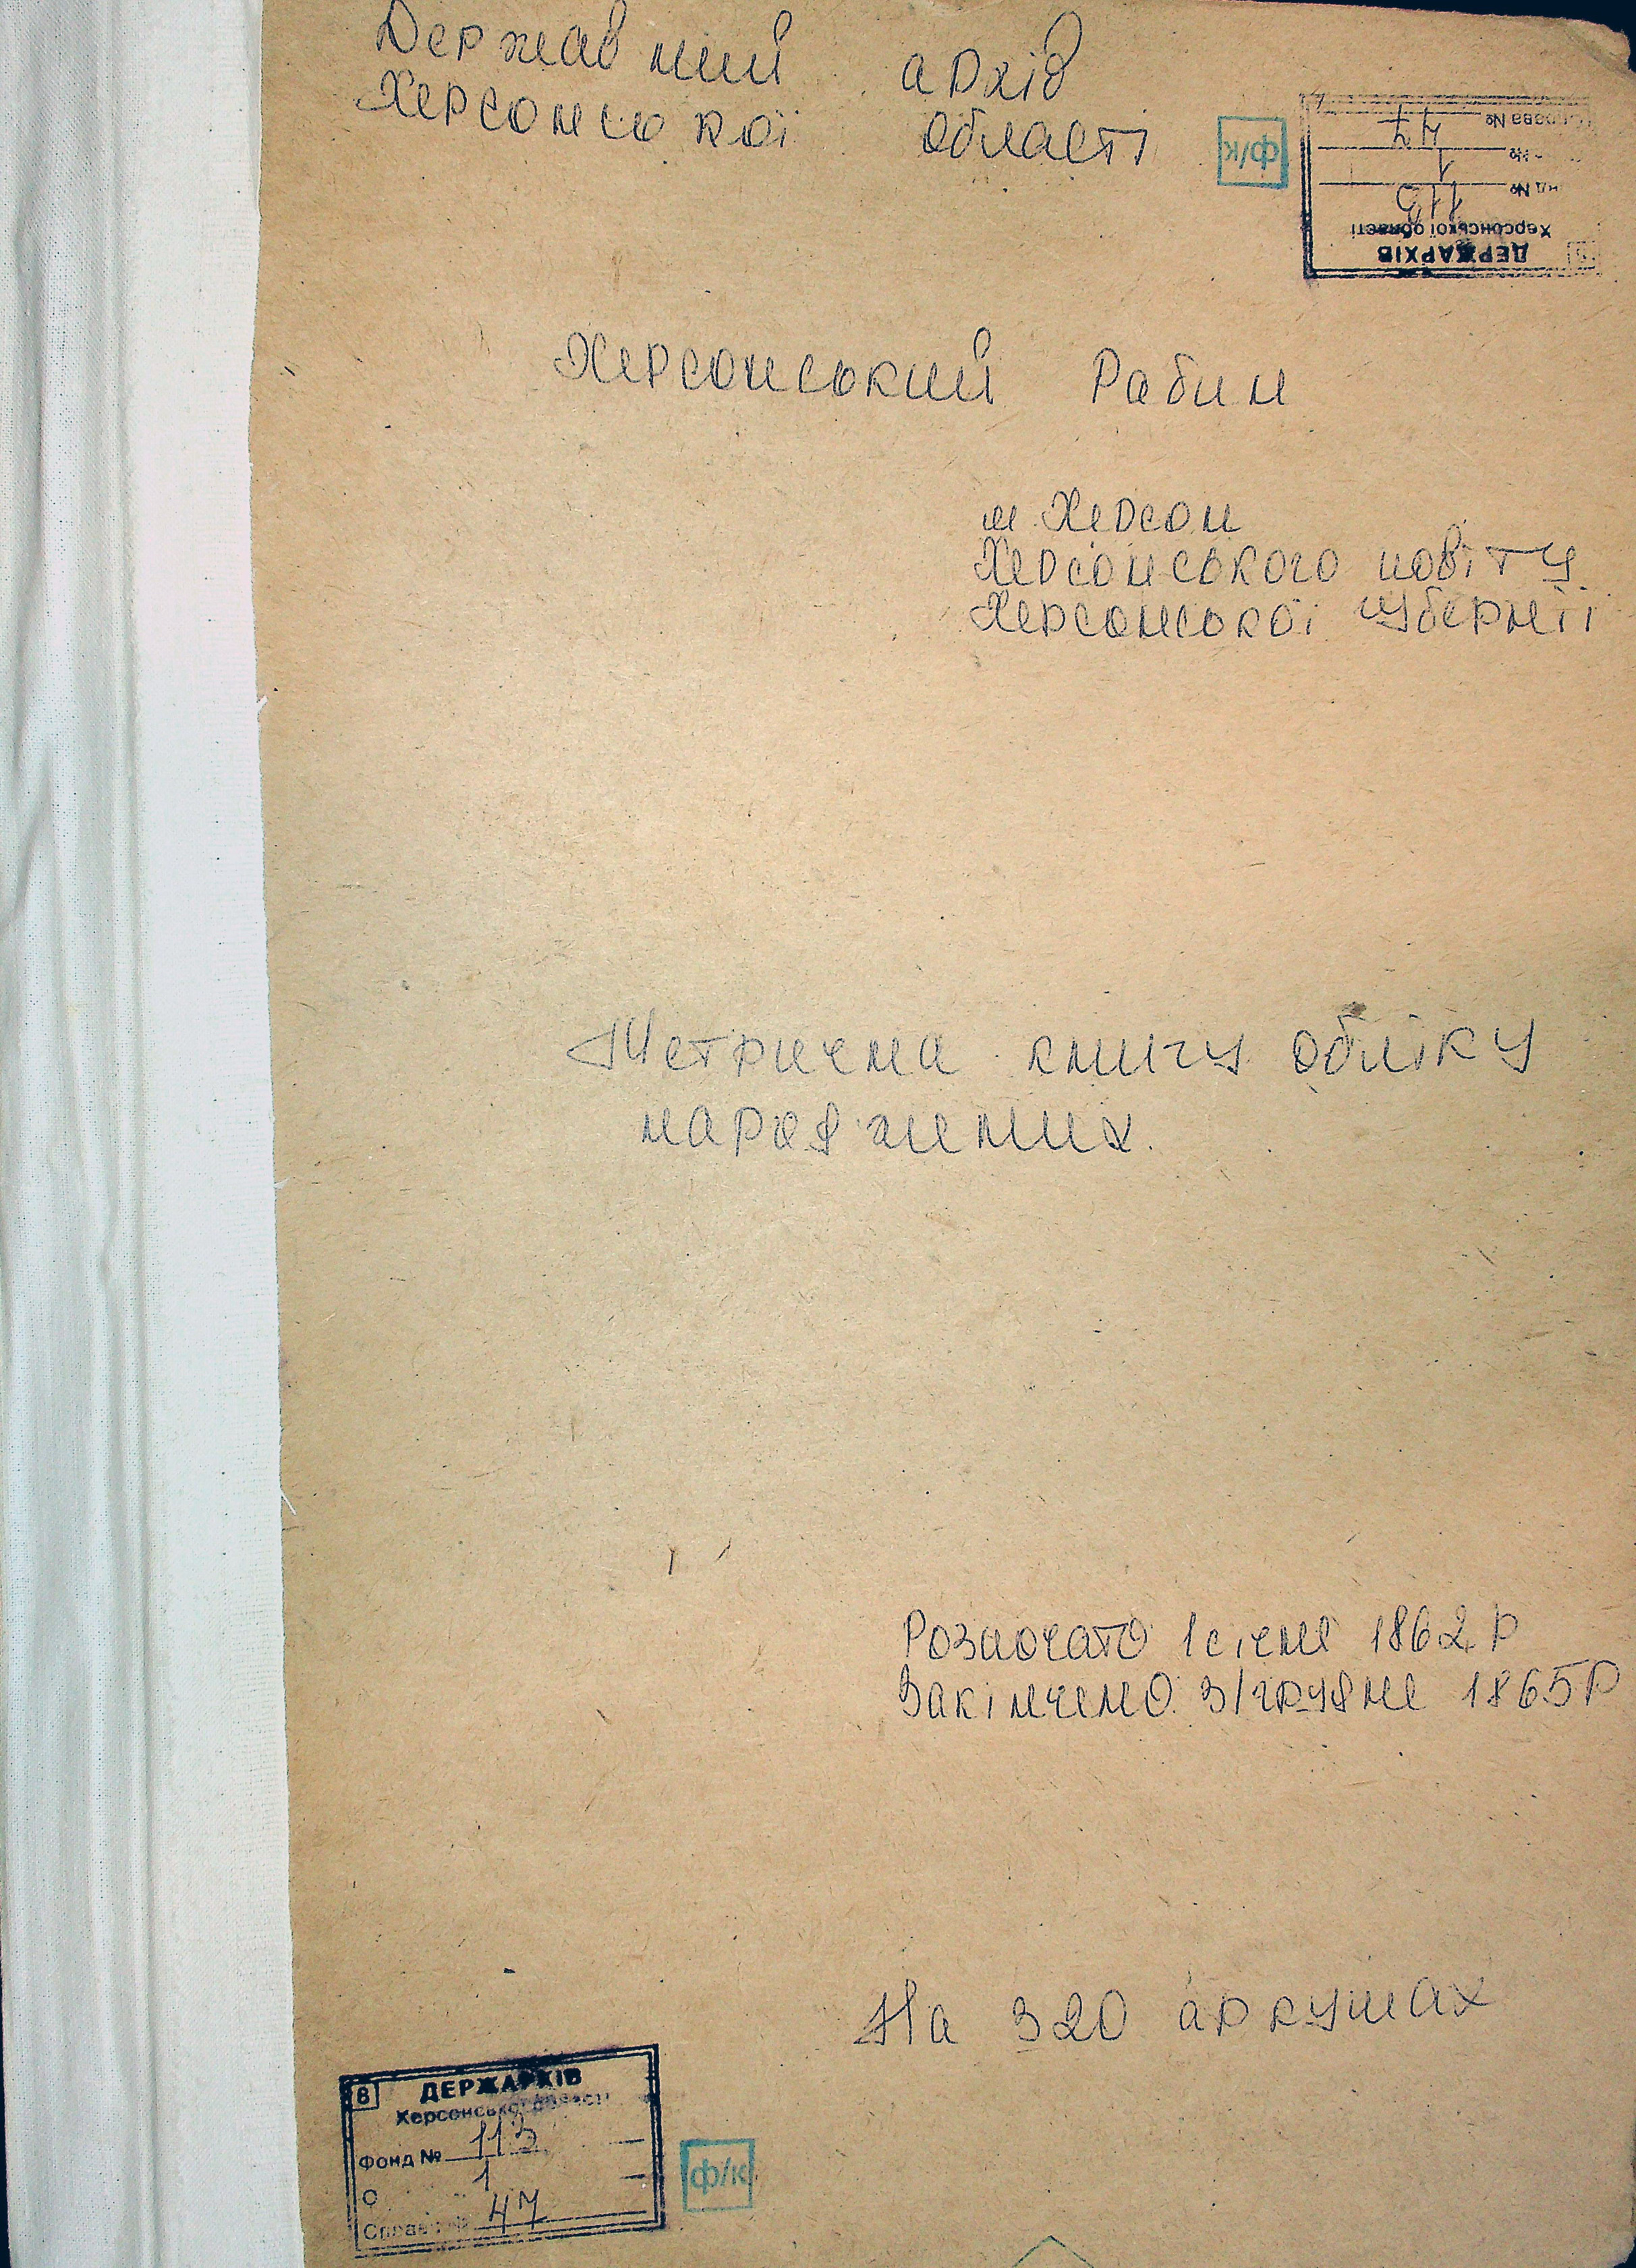 Державний архів
Херсонської області
ф/к
Справа № 47
1
113
Херсонської області
ДЕРЖАРХІВ
Херсонський Рабин
м Херсон
Херсонського повіту
Херсонської губернії
Метрична книгу обліку
народжених.
Розпочато 1 січня 1862 р
Закінчено 31 грудня 1865 р
На 320 аркушах
В ДЕРЖАРХІВ
Херсонської області
Фонд № 113
О 1
Справа № 47
ф/к